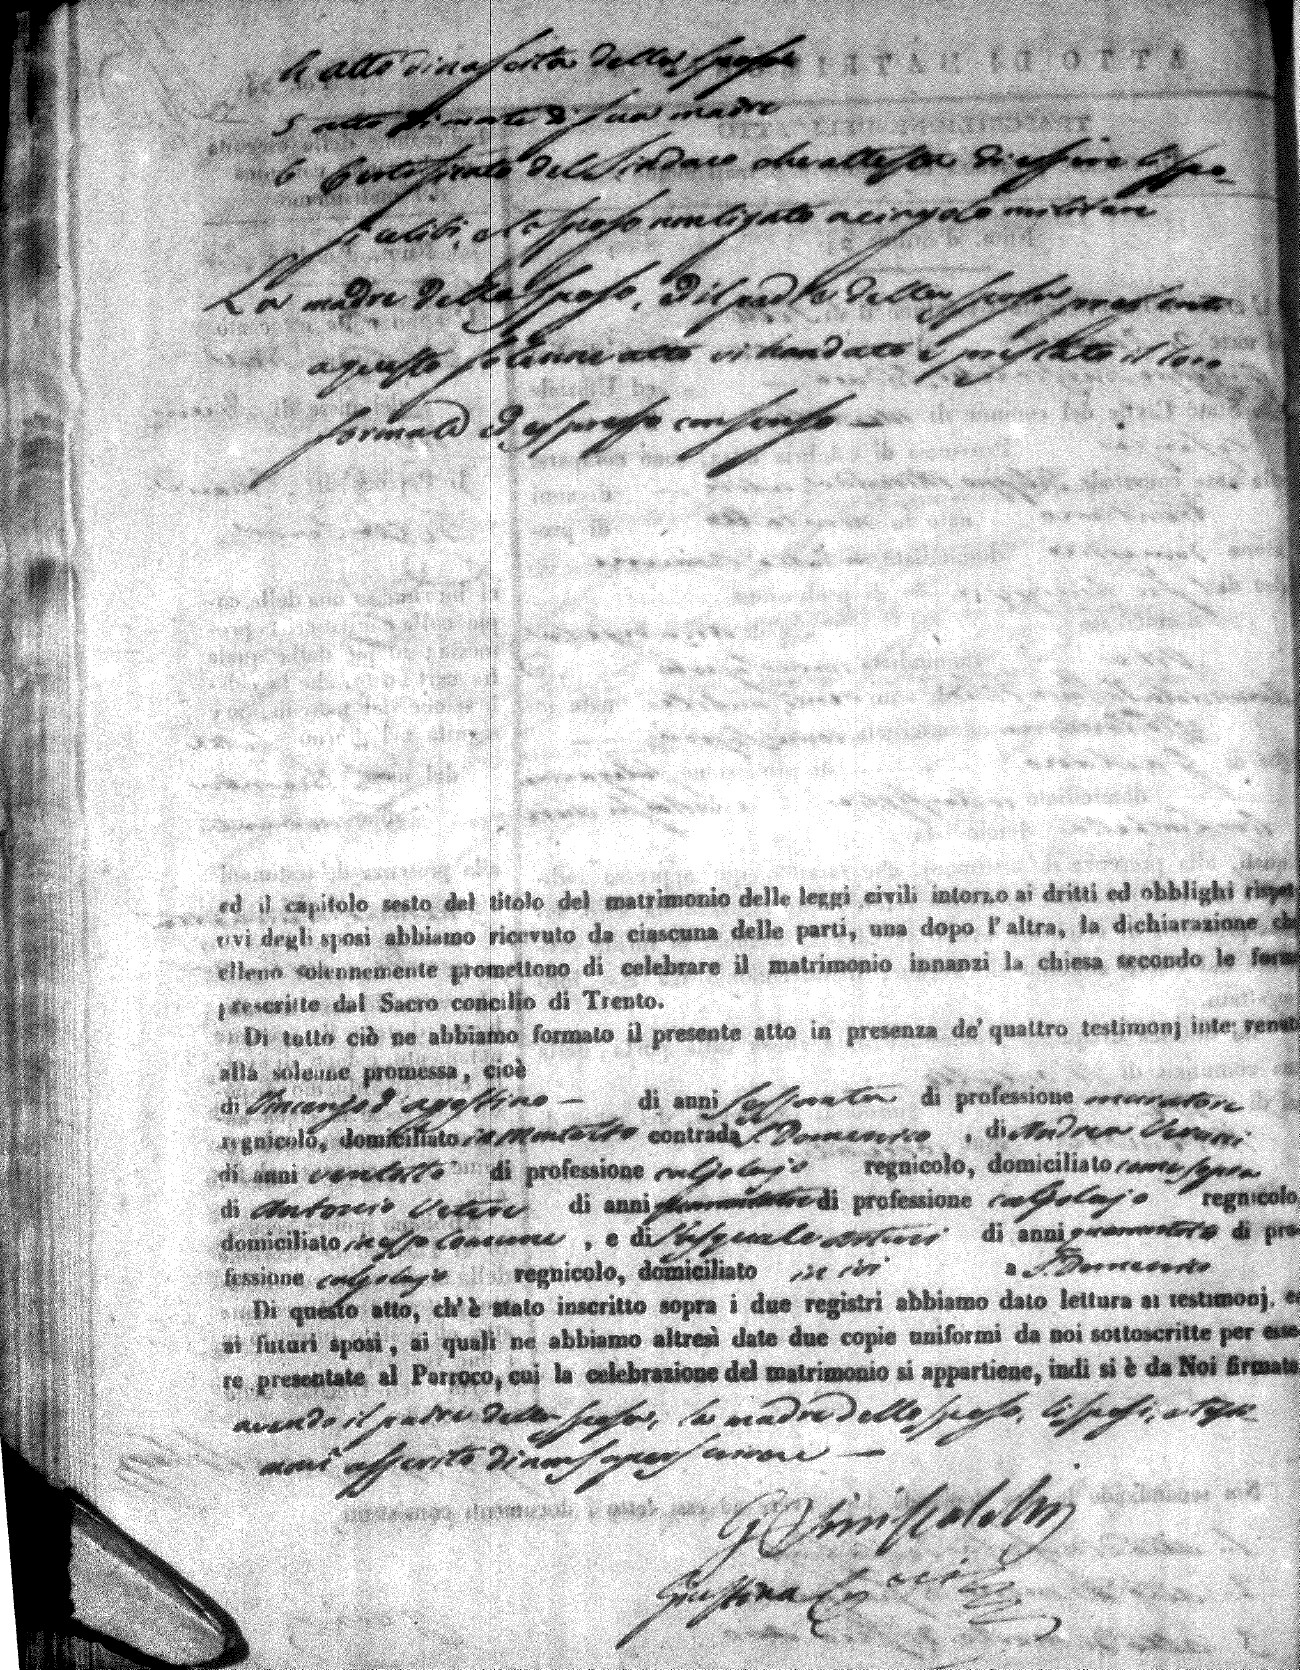 4 atto di nascita della sposa
5 atto di morte di sua madre
6 Certificato del Sindaco che attesta di essere li spo-
si celibi, e lo sposo non ligato a cingolo militare
La madre dello sposo, ed il padre della sposa presente
a questo solenne atto vi han dato e prestato il loro
formale ed espresso consenso —
ed il capitolo sesto del titolo del matrimonio delle leggi civili intorno ai dritti ed obblighi rispet-
tivi degli sposi abbiamo ricevuto da ciascuna delle parti, una dopo l'altra, la dichiarazione ch
elleno solennemente promettono di celebrare il matrimonio innanzi la chiesa secondo le forme
prescritte dal Sacro concilio di Trento.
Di tutto ciò ne abbiamo formato il presente atto in presenza de' quattro testimonj intervenuti
alla solenne promessa, cioè
di Vincenzo d'agostino — di anni sessanta di professione muratore
regnicolo, domiciliato in Montalto contrada S. Domenico, di Andrea
di anni ventotto di professione calzolajo regnicolo, domiciliato come sopra
di Antonio Vetere di anni di professione calzolajo regnicolo
domiciliato in esso Comune, e di Pasquale di anni quarantotto di pro-
fessione calzolajo regnicolo, domiciliato in ivi a S. Domenico
Di questo atto, ch'è stato inscritto sopra i due registri abbiamo dato lettura ai testimonj, ed
ai futuri sposi, ai quali ne abbiamo altresì date due copie uniformi da noi sottoscritte per esse-
re presentate al Parroco, cui la celebrazione del matrimonio si appartiene, indi si è da Noi firmato
avendo il padre della sposa, la madre dello sposo, li sposi, e testi-
monj asserito di non saper scrivere —
Giustina